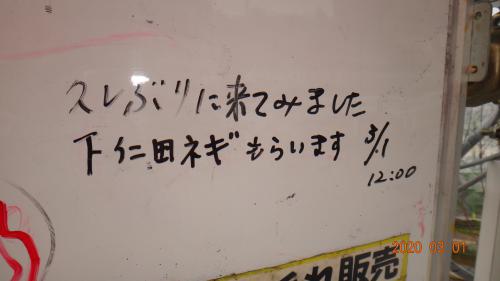 スレぶりに来てみました
下仁田ネギもらいます 3/1
12:00
れ販売
2020 03 01